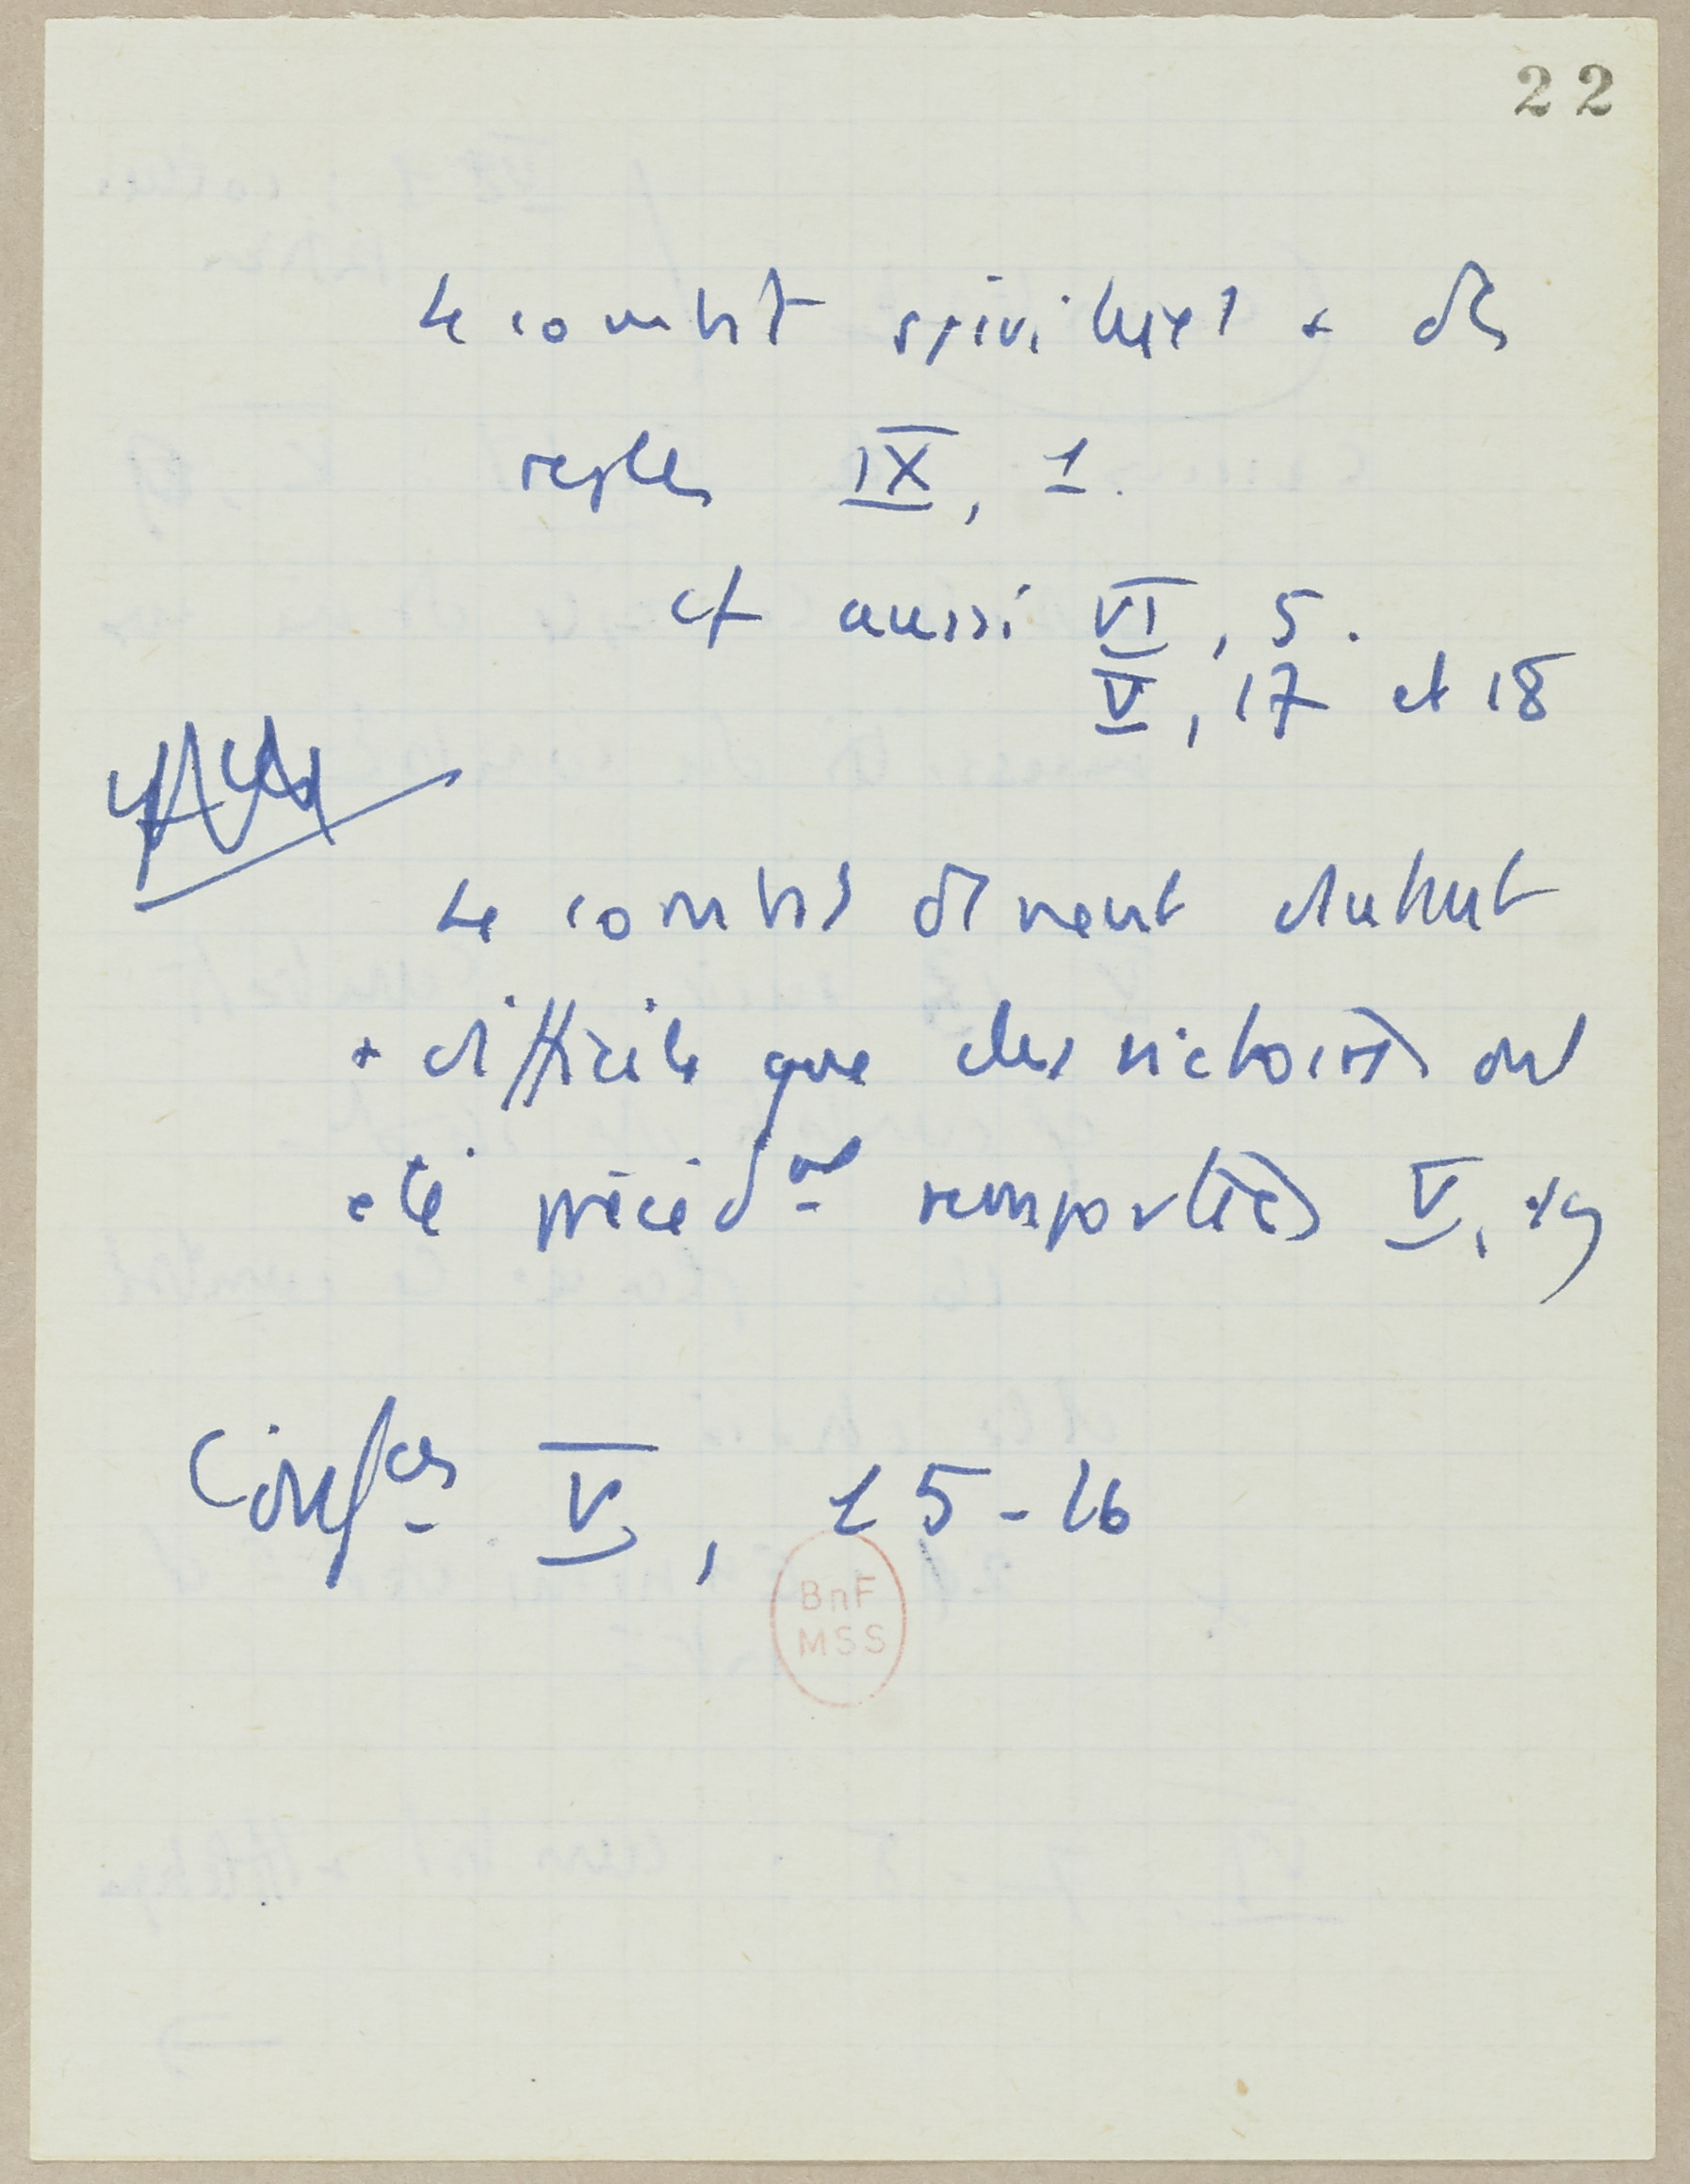 22
Le combat spirituel a des
regles IX, 1.
cf aussi VI, 5.
V, 17 et 18
Le combat devient d'autant
+ difficile que des victoires ont
été précédt remportées V, 19
Confces V, 15-16
BnF
MSS